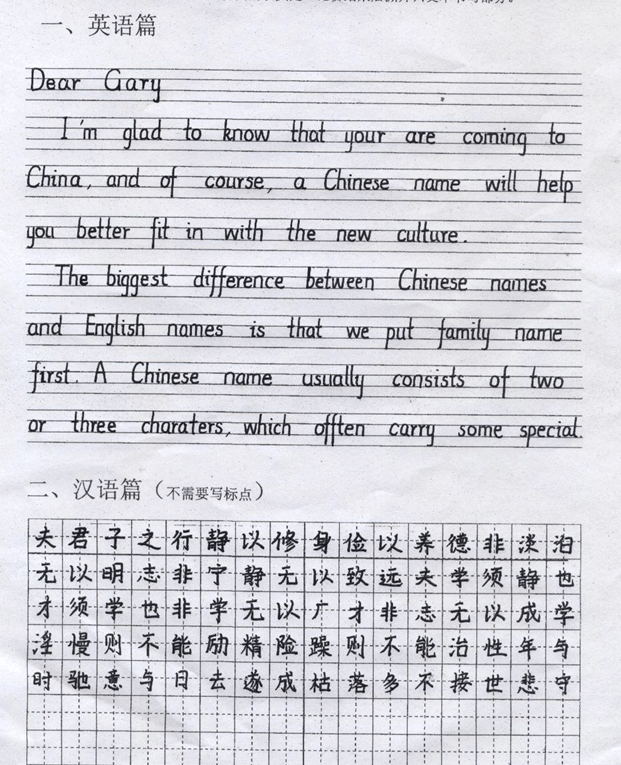 一、英语篇
Dear Gary
I'm glad to know that your are coming to
China, and of course, a Chinese name will help
you better fit in with the new culture.
The biggest difference between Chinese names
and English names is that we put family name
first. A Chinese name usually consists of two
or three charaters, which offten carry some special.
二、汉语篇（不需要写标点）
夫君子之行静以修身俭以养德非淡泊
无以明志非宁静无以致远夫学须静也
才须学也非学无以广才非志无以成学
淫慢则不能励精险躁则不能治性年与
时驰意与日去遂成枯落多不接世悲守